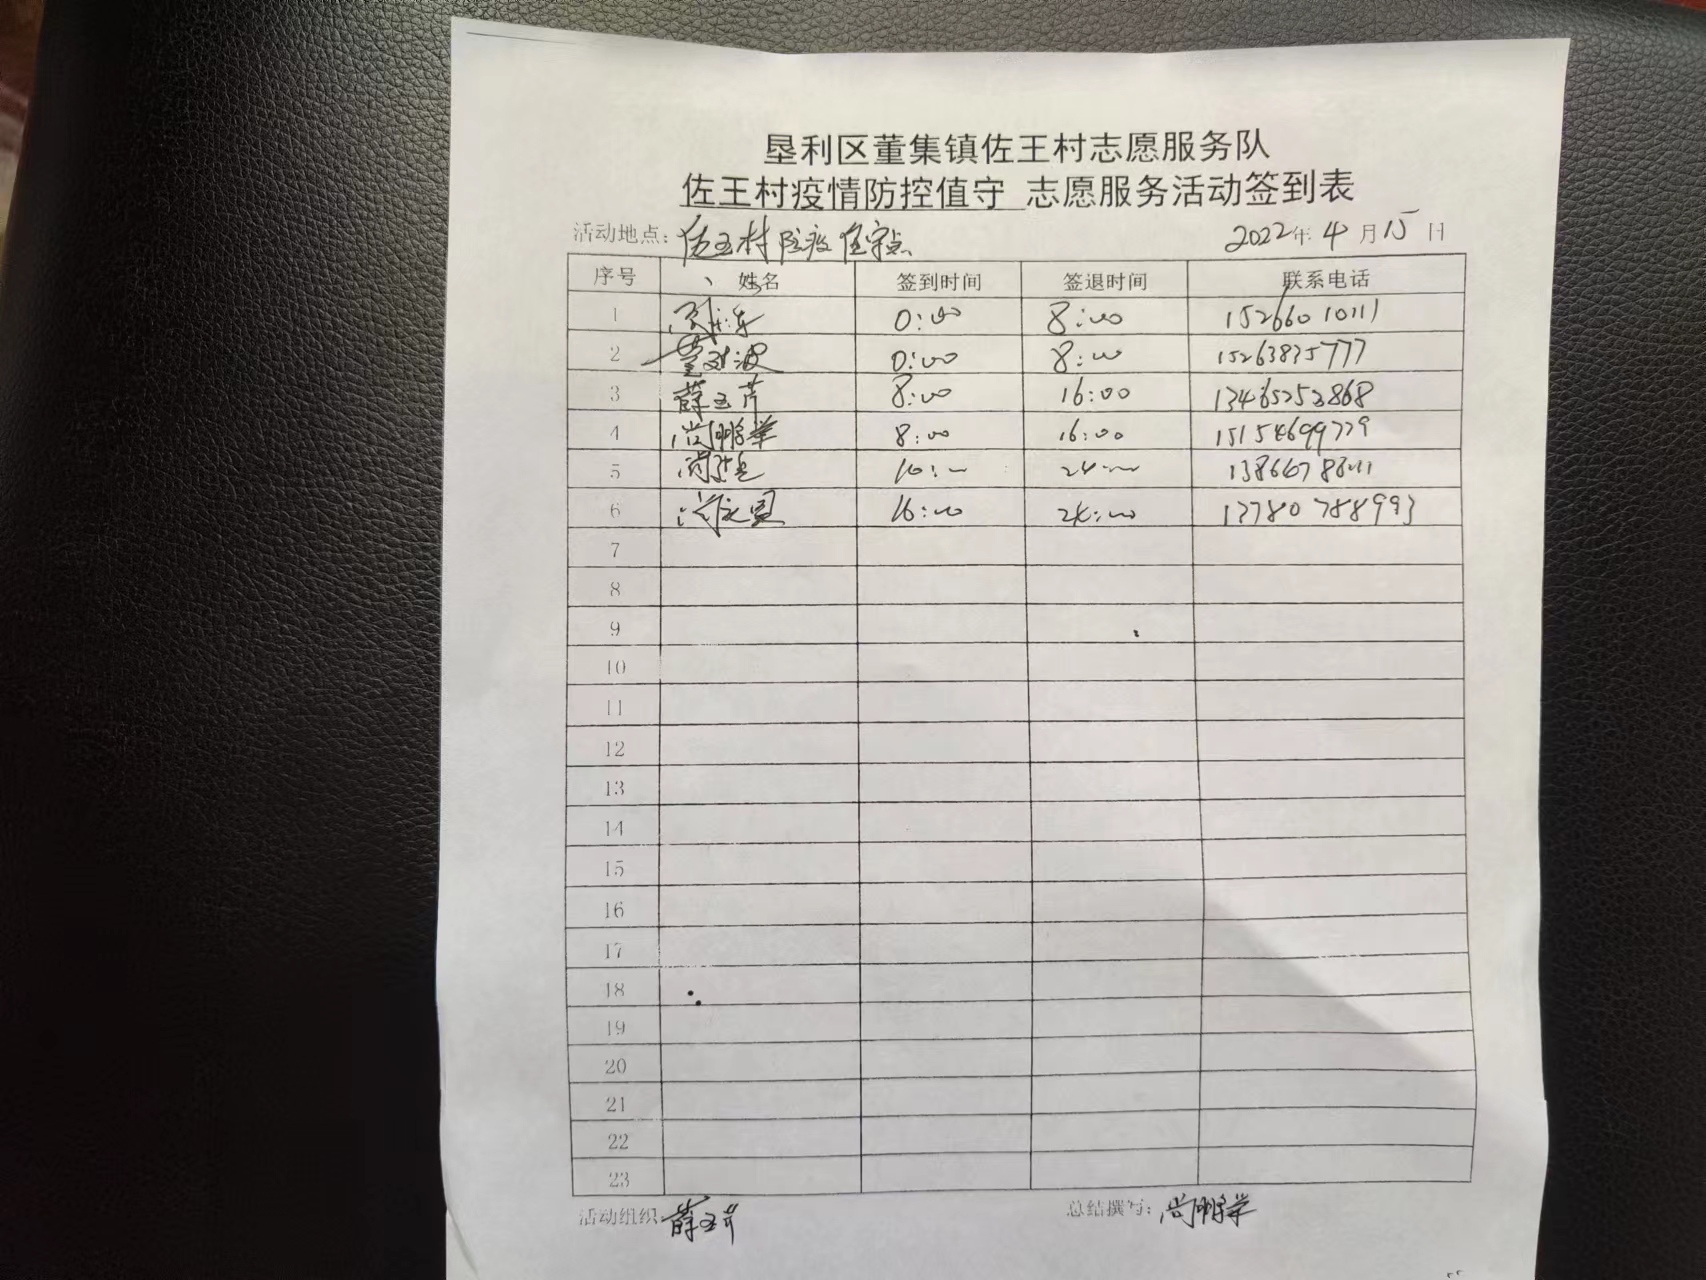 垦利区董集镇佐王村志愿服务队
佐王村疫情防控值守 志愿服务活动签到表
活动地点：佐王村防疫值守点 2022年4月15日
序号 姓名 签到时间 签退时间 联系电话
1 0:00 8:00 15266010111
2 董对波 0:00 8:00 15263835777
3 薛玉芹 8:00 16:00 13465253868
4 尚鹏举 8:00 16:00 15154699779
5 16:00 24:00
6 16:00 24:00 13780788993
7
8
9
10
11
12
13
14
15
16
17
18
19
20
21
22
23
活动组织：薛玉芹 总结撰写：尚鹏举